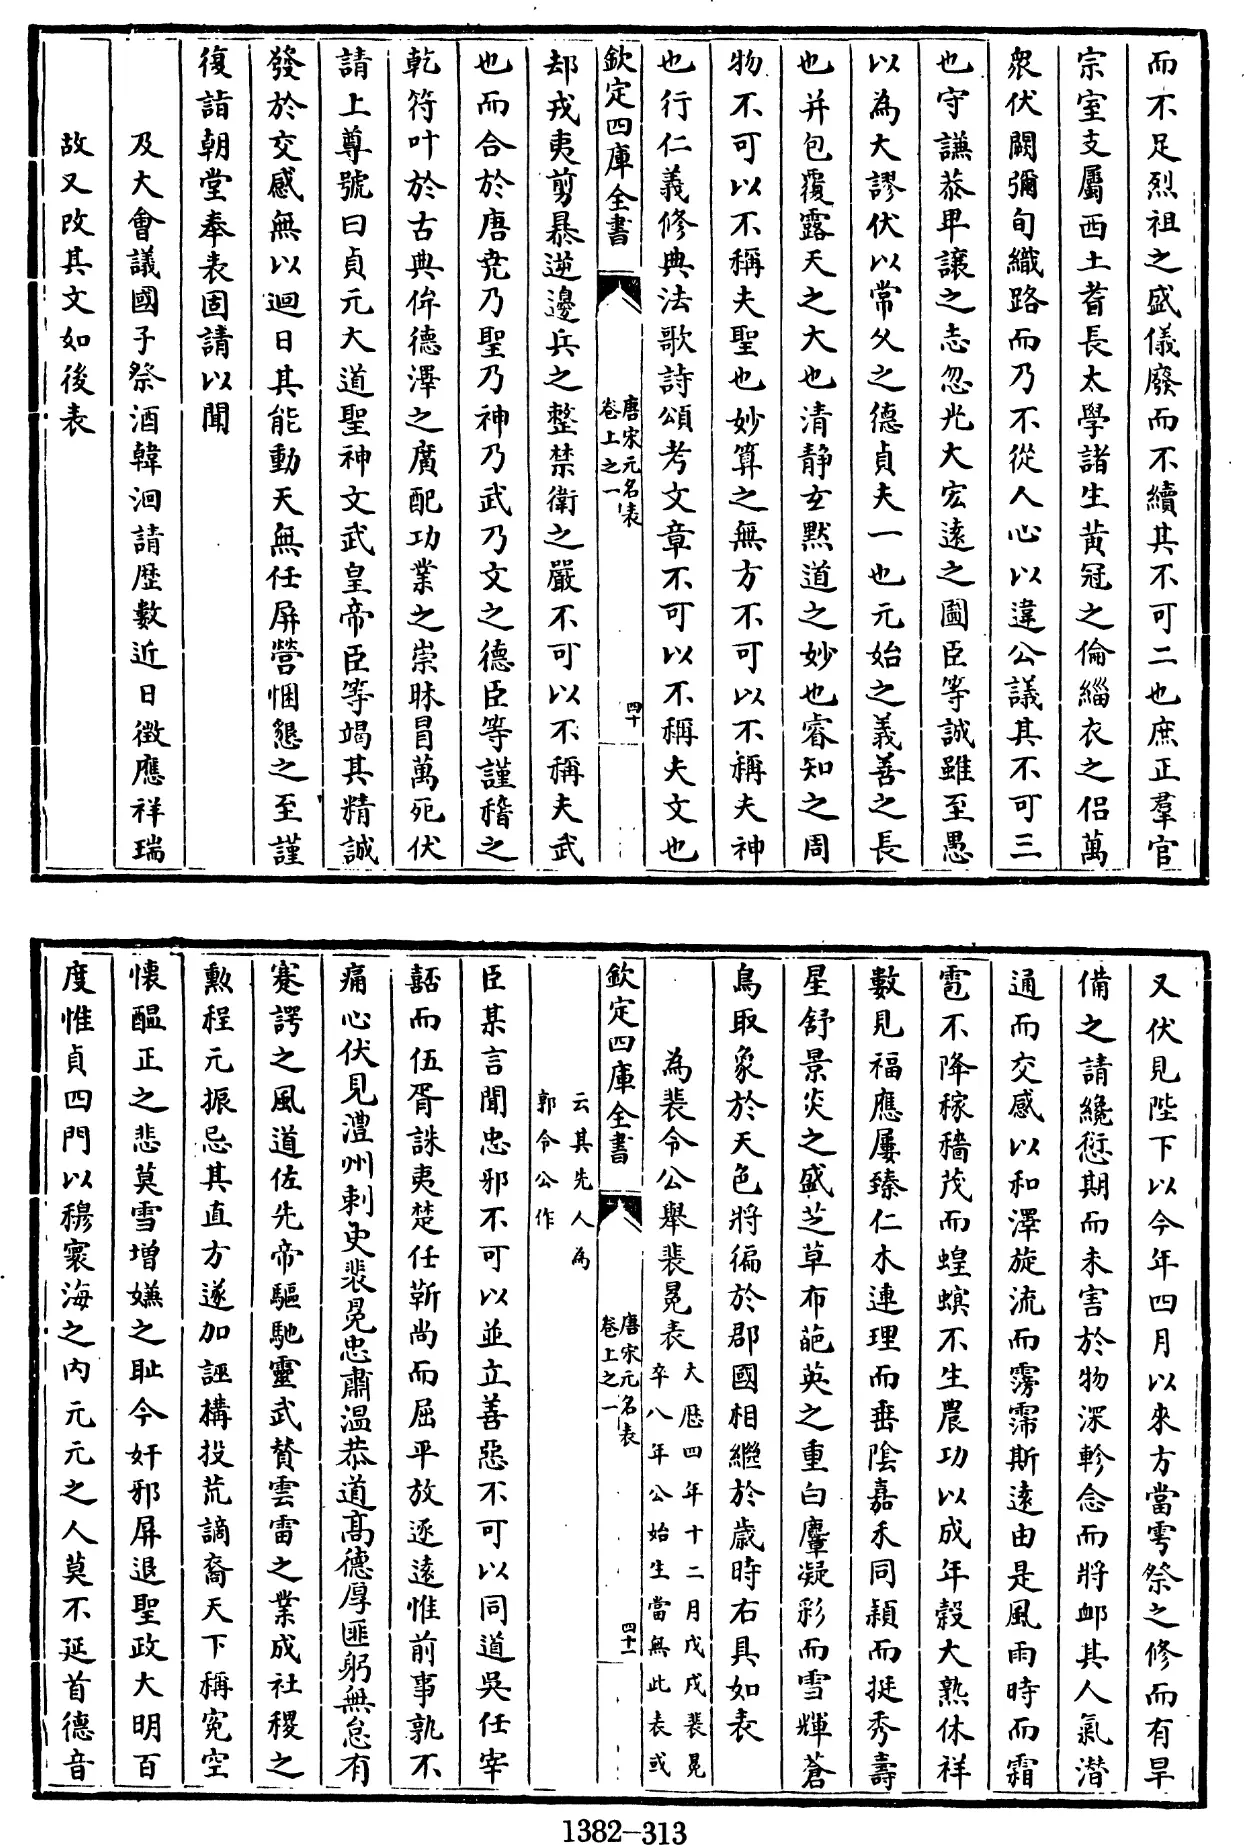 而不足烈祖之盛儀廢而不續其不可二也庶正羣官
宗室支屬西土耆長太學諸生黃冠之倫緇衣之侶萬
衆伏闕彌旬織路而乃不從人心以違公議其不可三
也守謙恭卑讓之志忽光大宏遠之圖臣等誠雖至愚
以為大謬伏以常久之德貞夫一也元始之義善之長
也并包覆露天之大也清静玄黙道之妙也睿知之周
物不可以不稱夫聖也妙算之無方不可以不稱夫神
也行仁義修典法歌詩頌考文章不可以不稱夫文也
欽定四庫全書
唐宋元名表
卷上之一
四十
却戎夷剪暴逆邊兵之整禁衛之嚴不可以不稱夫武
也而合於唐堯乃聖乃神乃武乃文之德臣等謹稽之
乾符叶於古典侔德澤之廣配功業之崇昧冒萬死伏
請上尊號曰貞元大道聖神文武皇帝臣等竭其精誠
發於交感無以迴日其能動天無任屏營悃懇之至謹
復詣朝堂奉表固請以聞
及大會議國子祭酒韓洄請歴數近日徵應祥瑞
故又改其文如後表
又伏見陛下以今年四月以來方當雩祭之修而有旱
備之請纔愆期而未害於物深軫念而將卹其人氣潛
通而交感以和澤旋流而霶霈斯遠由是風雨時而霜
雹不降稼穡茂而蝗螟不生農功以成年穀大熟休祥
數見福應屢臻仁木連理而垂陰嘉禾同穎而挺秀壽
星舒景炎之盛芝草布葩英之重白麞凝彩而雪輝蒼
鳥取象於天色將徧於郡國相繼於歲時右具如表
為裴令公舉裴冕表
大歴四年十二月戊戌裴冕
卒八年公始生當無此表或
欽定四庫全書
唐宋元名表
卷上之一
四十一
云其先人為
郭令公作
臣某言聞忠邪不可以並立善惡不可以同道吳任宰
嚭而伍胥誅夷楚任靳尚而屈平放逐遠惟前事孰不
痛心伏見澧州刺史裴冕忠肅温恭道髙德厚匪躬無怠有
蹇諤之風道佐先帝驅馳靈武賛雲雷之業成社稷之
勲程元振忌其直方遂加誣構投荒謫裔天下稱寃空
懷醖正之悲莫雪増嫌之恥今奸邪屏退聖政大明百
度惟貞四門以穆寰海之内元元之人莫不延首德音
1382-313